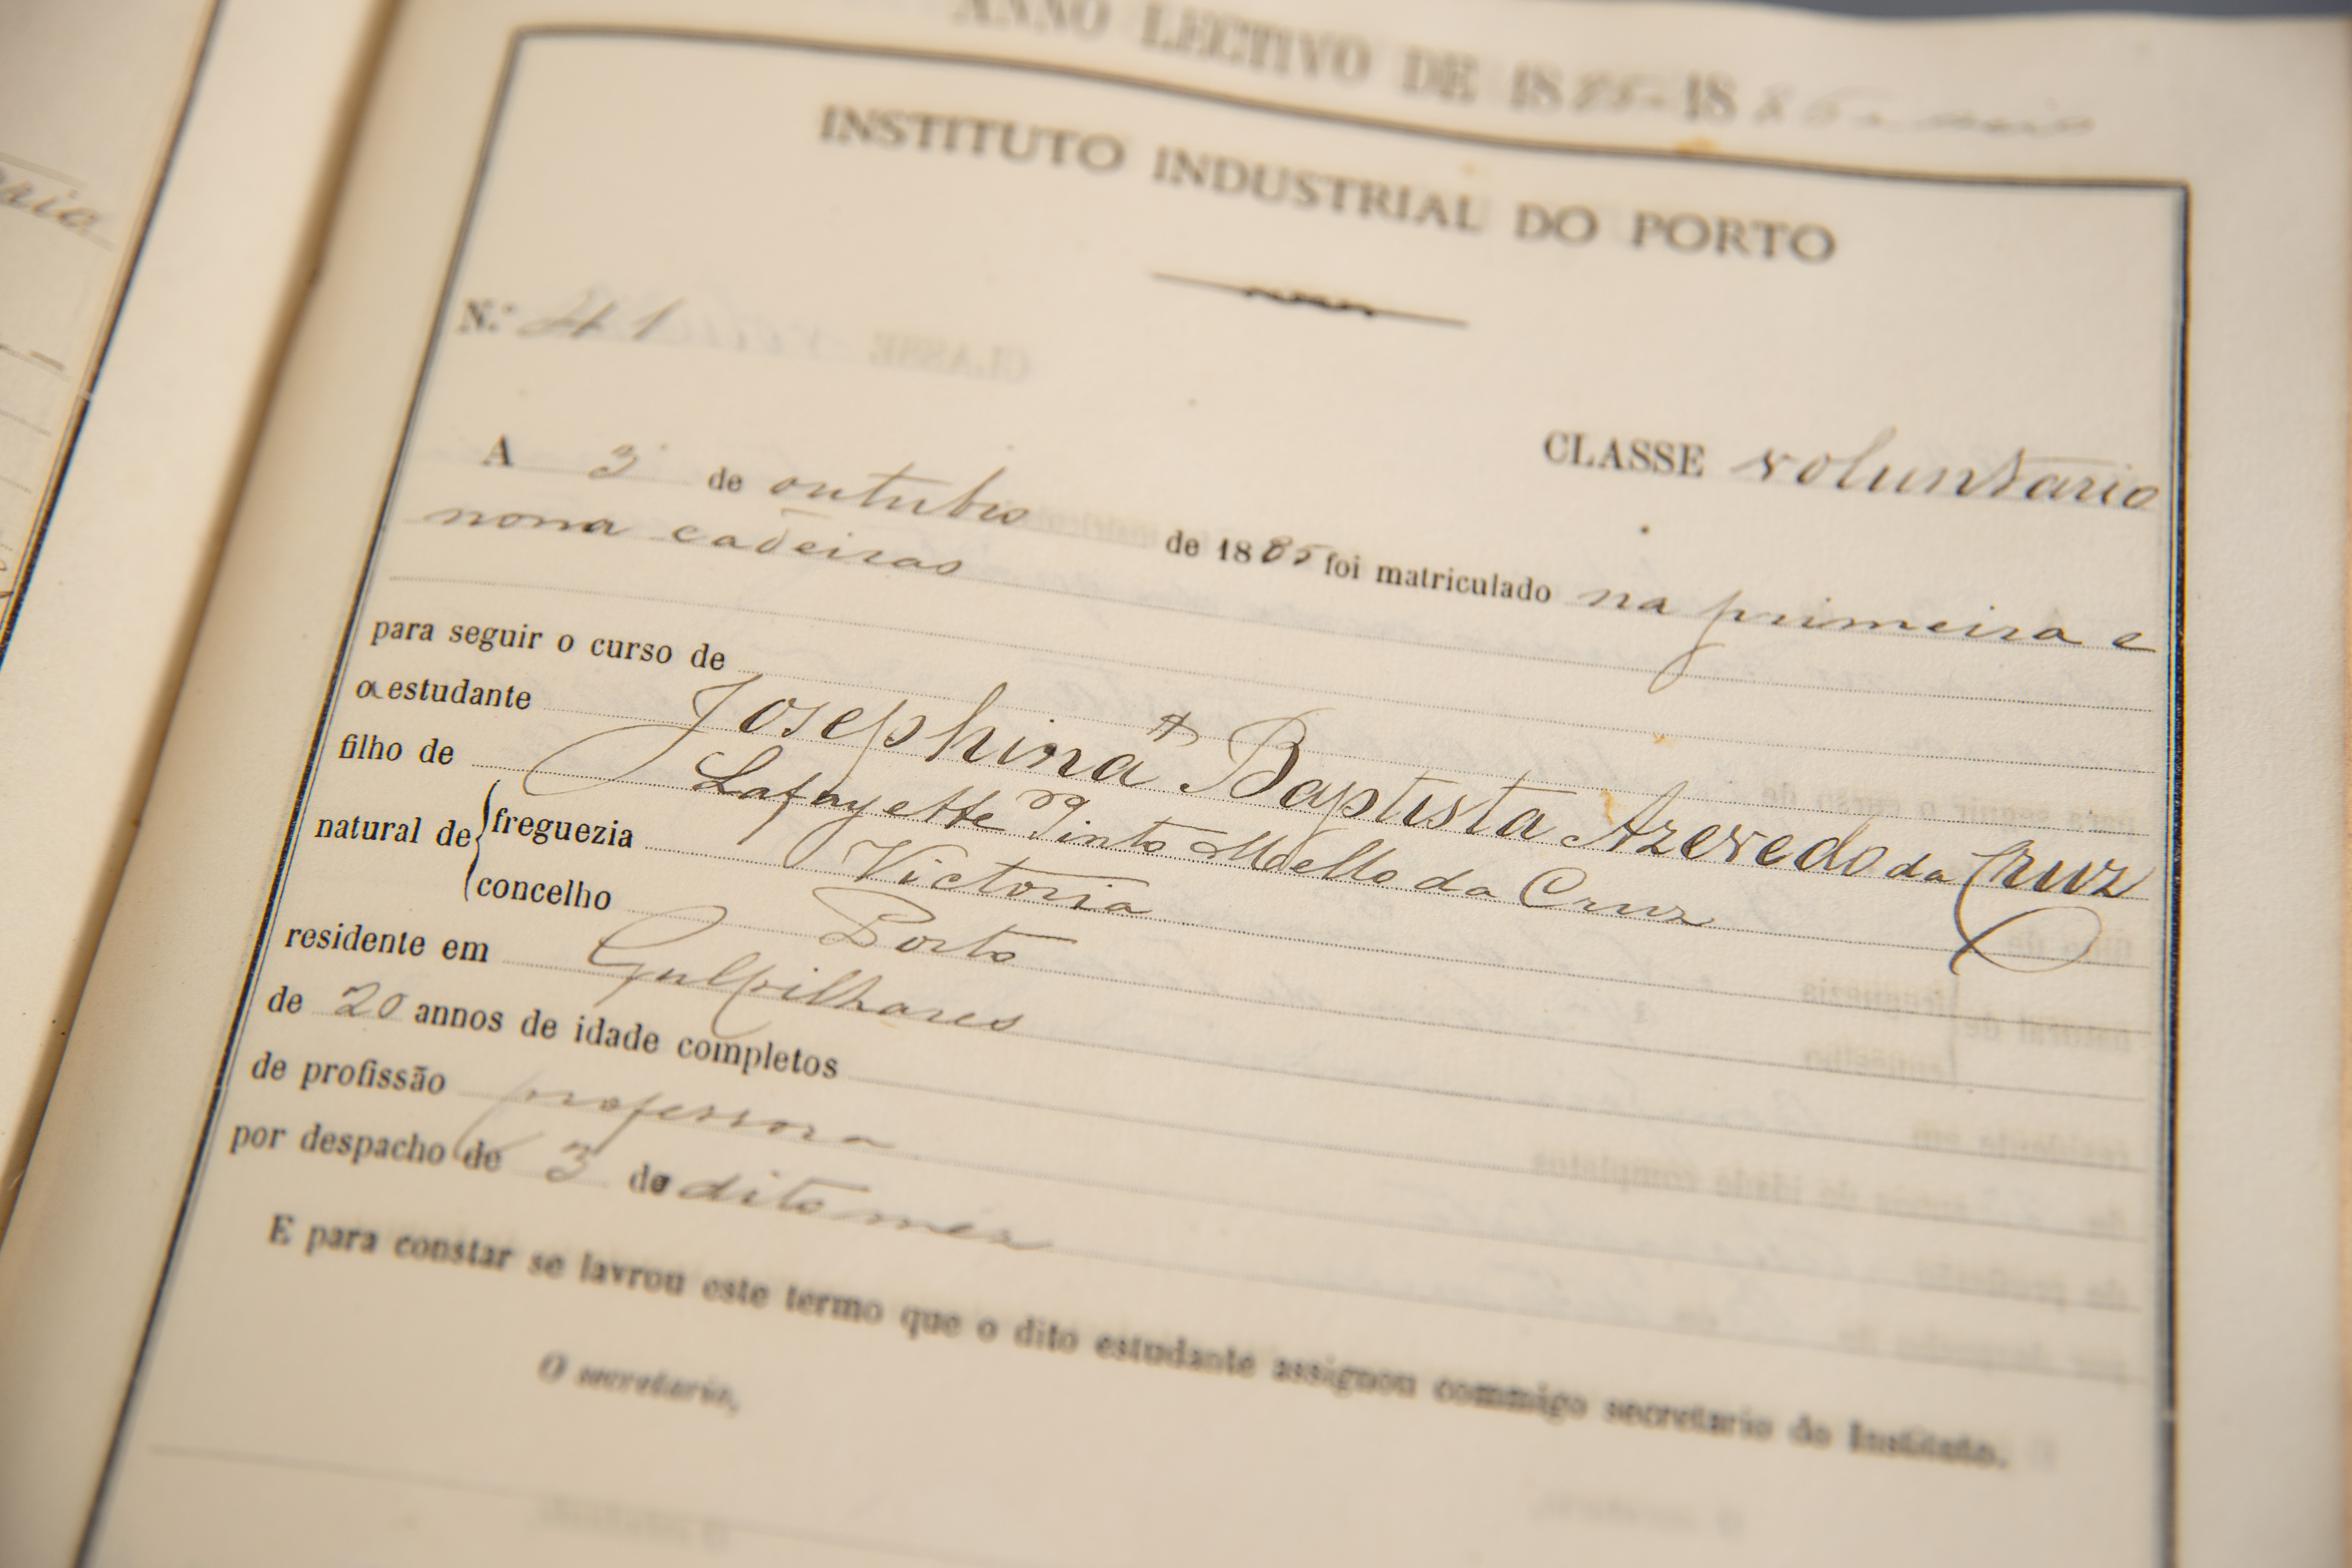 ANNO LECTIVO DE 1885-1886
INSTITUTO INDUSTRIAL DO PORTO
N.º 41
CLASSE voluntario
A 3 de outubro de 1885 foi matriculado na primeira e
nona cadeiras
para seguir o curso de
a estudante Josephina A Baptista Azevedo da Cruz
filho de Lafayette Pinto Mello da Cruz
natural de freguezia Victoria
concelho Porto
residente em Gulpilhares
de 20 annos de idade completos
de profissão professora
por despacho de 3 do dito mez
E para constar se lavrou este termo que o dito estudante assignou commigo secretario do Instituto.
O secretario,